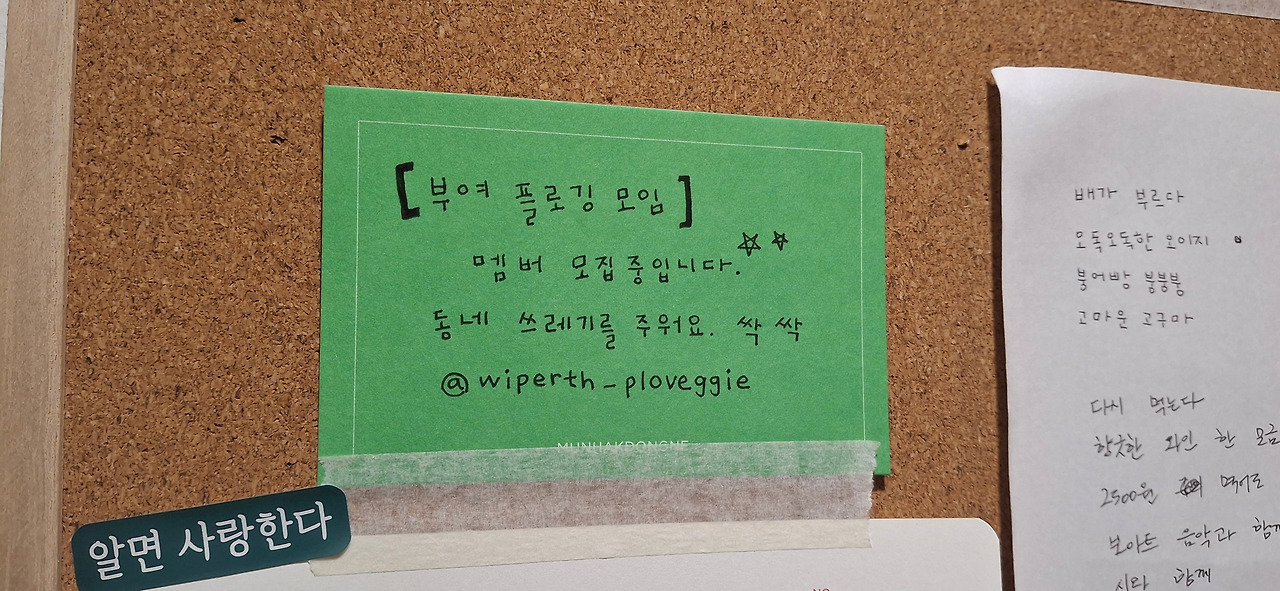 [부여 플로깅 모임]
멤버 모집중입니다.☆☆
동네 쓰레기를 주워요. 싹 싹
@wiperth_ploveggie
MUNHAKDONGNE
알면 사랑한다
배가 부르다
오독오독한 오이지
붕어빵 붕붕붕
고마운 고구마
다시 먹는다
향긋한 와인 한 모금
2500원 먹어도
보아트 음악과 함께
시라 함께